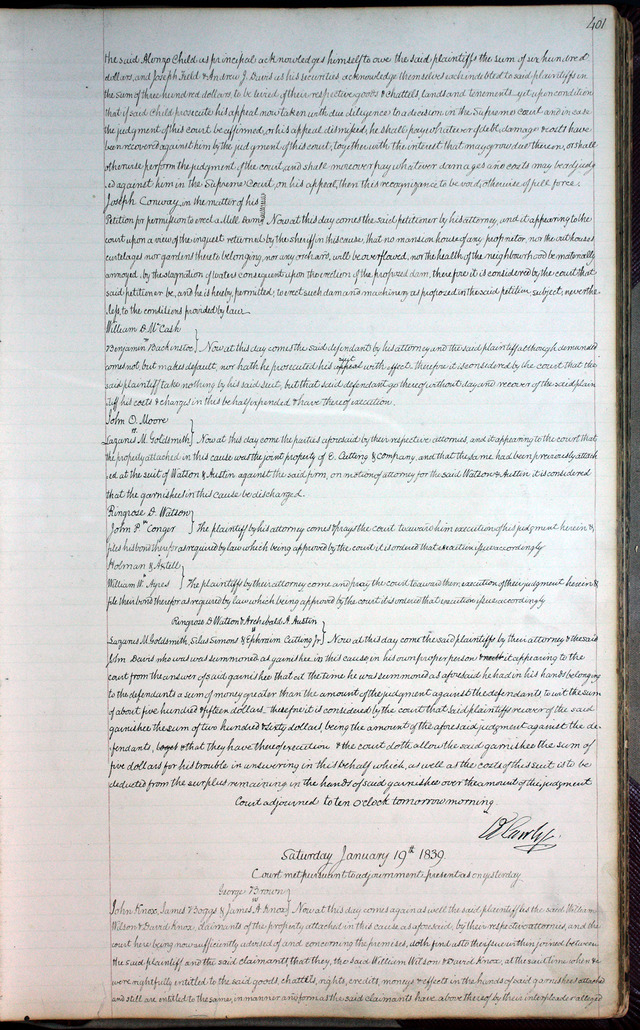 401
the said Alonzo Child as principal acknowledges himself to owe the said plaintiffs the sum of six hundred
dollars, and Joseph Field & Andrew J. Davis as his securities, acknowledge themselves each indebted to said plaintiffs in
the sum of three hundred dollars, to be levied of their respective goods & chattels, lands and tenements yet upon condition
that if said Child prosecute his appeal now taken with due diligence to a decision in the Supreme court and in case
the judgment of this court be affirmed, or his appeal dismissed, he shall pay whatever of debt, damages & costs have
been recovered against him by the judgment of this court, together with the interest that may grow due thereon, or shall
otherwise perform the judgment of the court, and shall moreover pay whatever damages and costs may be adjudg
ed against him in the Supreme Court, on his appeal, then this recognizance to be void, otherwise of full force.
Joseph Conway in the matter of his
Petition for permission to erect a Mill Dam } Now at this day comes the said petitioner by his attorney, and it appearing to the
court upon a view of the inquest returned by the sheriff in this cause, that no mansion house of any proprietor, nor the outhouses
curtelages nor gardens thereto belonging, nor any orchard, will be overflowed, nor the health of the neighbourhood be materially
annoyed, by the stagnation of waters consequent upon the erection of the proposed dam, therefore it is considered by the court that
said petitioner be, and he is hereby, permitted, to erect such dam and machinery as proposed in the said petition, subject, neverthe
less, to the conditions provided by law.
William D McCash
Benjamin Backinstoe } Now at this day comes the said defendant by his attorney and the said plaintiff although demanded
comes not, but makes default, nor hath he prosecuted his appeal suit with effect, therefore it is considered by the court that the
said plaintiff take nothing by his said suit, but that said defendant go thereof without day and recover of the said plain
tiff his costs & charges in this behalf expended & have thereof execution.
John O. Moore
vs
Lazarus M. Goldsmith } Now at this day come the parties aforesaid by their respective attornies, and it appearing to the court that
the property attached in this cause was the joint property of E. Cutting & Company, and that the same had been previously attach
ed at the suit of Watson & Austin against the said firm, on motion of attorney for the said Watson & Austin, it is considered
that the garnishees in this cause be discharged.
Ringrose D. Watson
vs
John P. Conger } The plaintiff by his attorney comes & prays the court to award him execution of his judgment herein &
files his bond therefor as required by law which being approved by the court it is ordered that execution issue accordingly
Holman & Axtell
vs
William W. Ayres } The plaintiffs by their attorney come and pray the court to award them execution of their judgment herein &
file their bond therefor as required by law which being approved by the court it is ordered that execution issue accordingly
Ringrose D Watson & Archebald A. Austin
vs
Lazarus M. Goldsmith, Silus Simons & Ephraim Cutting Jr } Now at this day come the said plaintiffs by their attorney & the said
John Davis who was summoned as garnishee, in this cause, in his own proper person & it appearing to the
court from the answer of said garnishee that at the time he was summoned as aforesaid he had in his hands belonging
to the defendants a sum of money greater than the amount of the judgment against the defendants, to wit the sum
of about five hundred & fifteen dollars. Therefore it is considered by the court that said plaintiffs recover of the said
garnishee the sum of two hundred & sixty dollars, being the amount of the aforesaid judgment against the de
fendants, & that they have thereof execution & the court doth allow the said garnishee the sum of
five dollars for his trouble in answering in this behalf which, as well as the costs of this suit is to be
deducted from the surplus remaining in the hands of said garnishee over the amount of the judgment
Court adjourned to ten o'clock tomorrow morning.
Saturday January 19th 1839.
Court met pursuant to adjournment present as on yesterday
George Brown
vs
John Knox, James Boggs & James A Knox } Now at this day comes again as well the said plaintiff as the said William
Wilson & David Knox, claimants of the property attached in this cause as aforesaid, by their respective attornies, and the
court here being now sufficiently advised of and concerning the premises, doth find as to the issue within joined between
the said plaintiff and the said claimants that they, the said William Wilson & David Knox, at the said time when &c
were rightfully entitled to the said goods, chattels, rights, credits, moneys & effects in the hands of said garnishees attached
and still are entitled to the same, in manner and form as the said claimants have above thereof by their interpleader alleged